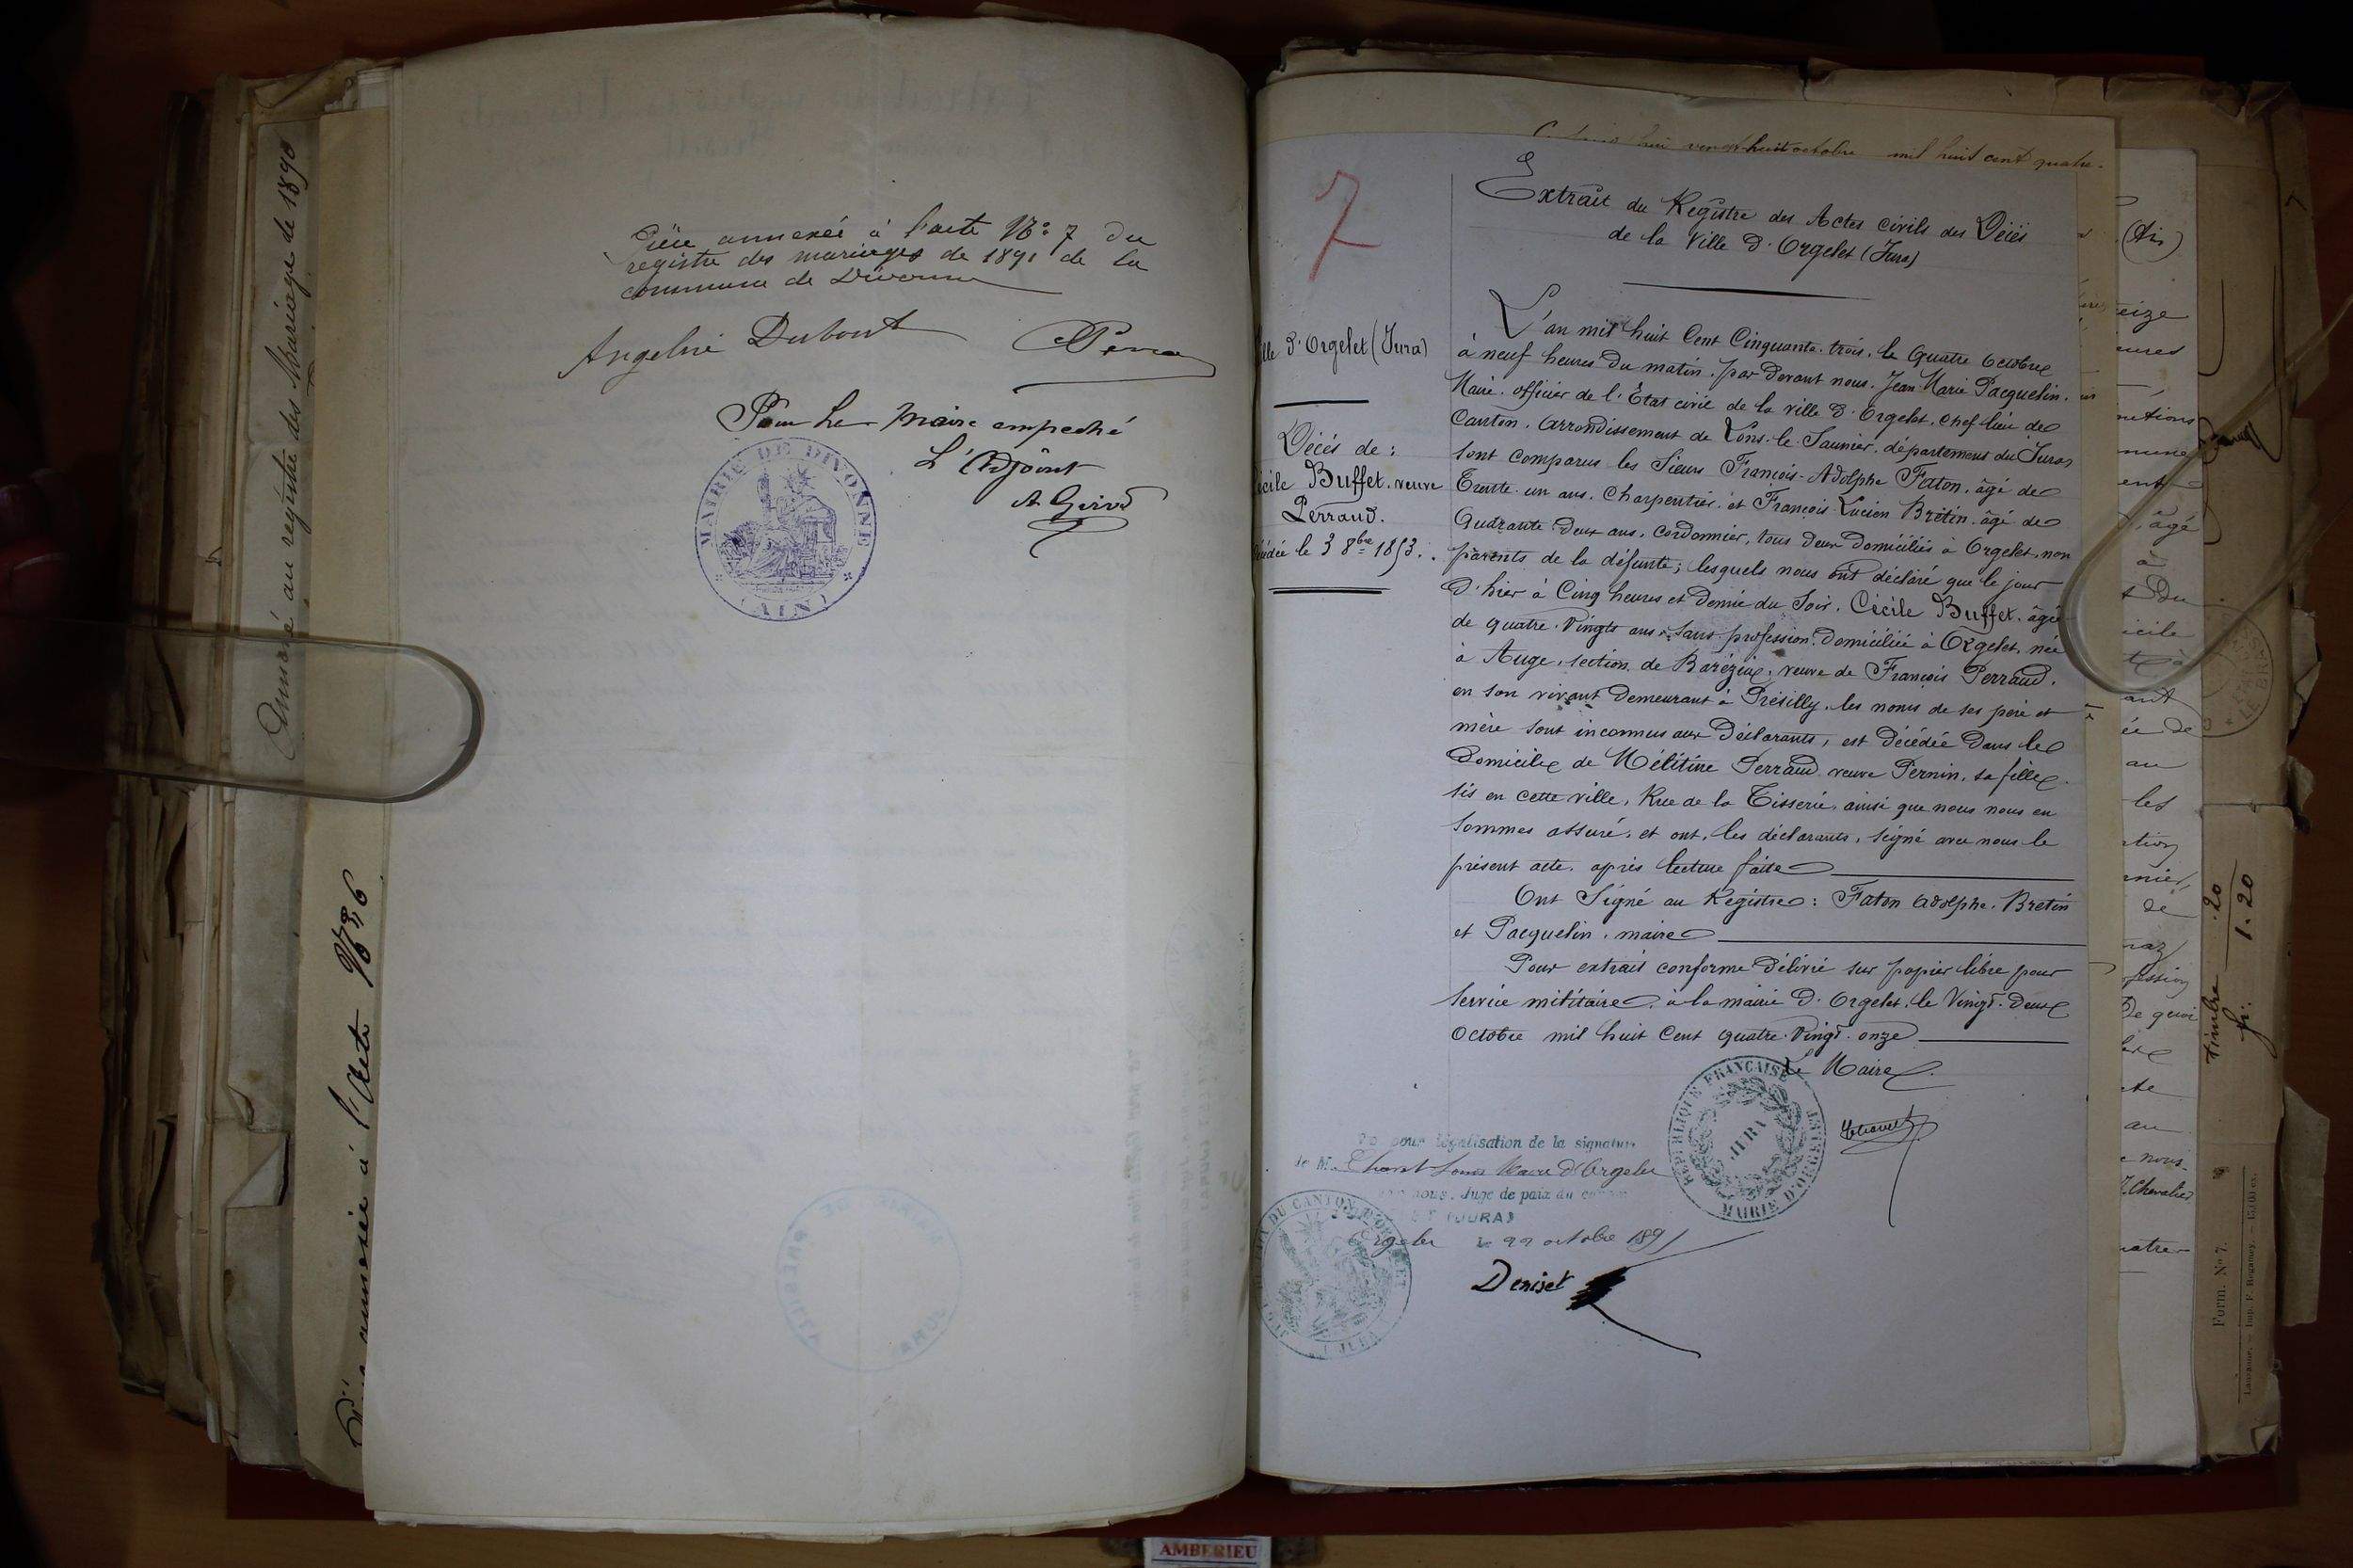 Annexé au registre des Mariage de 1890
annexée à l'acte N° 36
Pièce annexée à l'acte N° 7 du
registre des mariages de 1891 de la
commune de Divonne
Angeline Dubout
Pour Le Maire empeché
L'Adjoint
MAIRIE DE DIVONNE
(AIN)
7
Extrait du Registre des Actes civils des Décès
de la Ville d'Orgelet (Jura)
d'Orgelet (Jura)
Décès de :
Buffet, veuve
Perraud.
le 3 8bre 1853.
L'an mil huit Cent Cinquante-trois, le Quatre Octobre
à neuf heures du matin, par devant nous, Jean-Marie Pacquelin,
Maire, officier de l'État civil de la ville d'Orgelet, chef lieu de
Canton, arrondissement de Lons-le-Saunier, département du Jura,
sont comparus les Sieurs François-Adolphe Faton, âgé de
Trente-un ans, Charpentier, et François-Lucien Bretin, âgé de
Quarante-deux ans, Cordonnier, tous deux domiciliés à Orgelet, non
parents de la défunte ; lesquels nous ont déclaré que le jour
d'hier à Cinq heures et demie du Soir, Cécile Buffet, âgée
de quatre-Vingts ans, sans profession, domiciliée à Orgelet, née
à Auge, section de Barézia, veuve de François Perraud,
en son vivant demeurant à Présilly, les noms de ses père et
mère sont inconnus aux déclarants, est décédée dans le
domicile de Mélitine Perraud veuve Pernin, sa fille,
sis en cette ville, Rue de la Tisserie, ainsi que nous nous en
sommes assuré, et ont, les déclarants, signé avec nous le
présent acte, après lecture faite
Ont Signé au Registre : Faton Adolphe, Bretin
et Pacquelin, maire
Pour extrait conforme délivré sur papier libre pour
service militaire, à la mairie d'Orgelet, le Vingt-deux
Octobre mil huit Cent quatre-Vingt-onze
Le Maire
RÉPUBLIQUE FRANÇAISE
JURA
MAIRIE D'ORGELET
pour légalisation de la signature
de M. Louis Maire d'Orgelet
nous, Juge de paix du
(JURA)
Orgelet le 22 octobre 1891
Deniset
DU CANTON D'ORGELET
JURA
vingt-huit octobre mil huit cent quatre-
(Ain)
timbre .20
fr. 1.20
Form. N° 7.
AMBERIEU